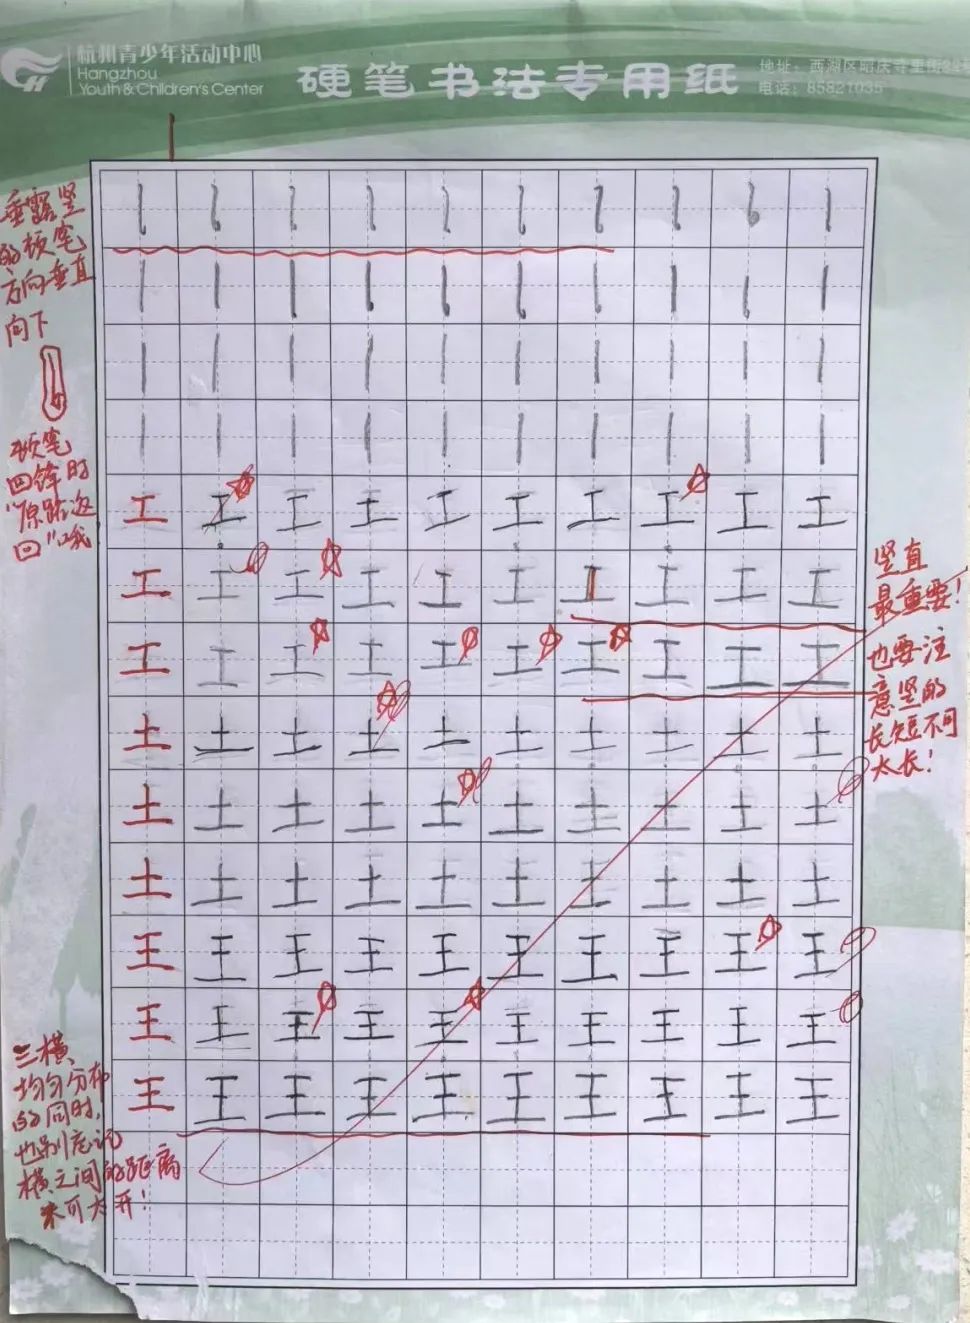 杭州青少年活动中心
Hangzhou
Youth & Children's Center
硬笔书法专用纸
地址：西湖区昭庆寺里街22号
电话：85821035
垂露竖
的顿笔
方向垂直
向下
顿笔
回锋时
“原路返
回”哦
工工工工工工工工工工
工工工工工工工工工工
工工工工工工工工工工
土土土土土土土土土土
土土土土土土土土土土
土土土土土土土土土土
王王王王王王王王王王
王王王王王王王王王王
王王王王王王王王王王
竖直
最重要！
也要注
意竖的
长短不可
太长！
三横
均匀分布
的同时，
也别忘记
横之间的距离
不可太开！